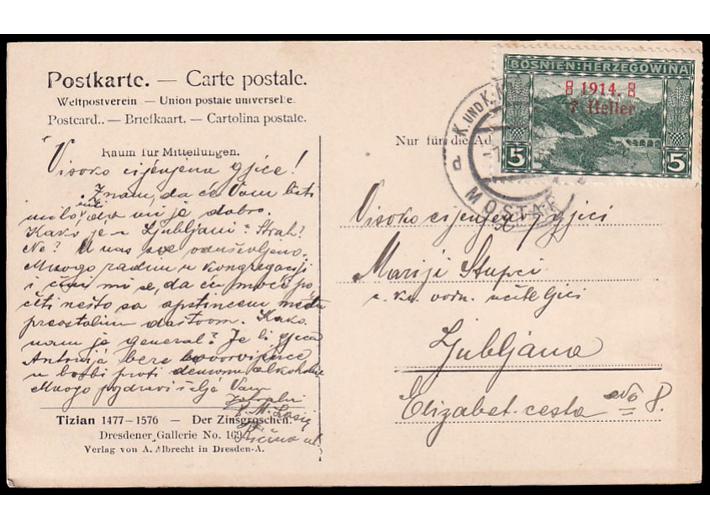 Postkarte. — Carte postale.
Weltpostverein — Union postale universelle
Postcard.. — Briefkaart. — Cartolina postale.
Raum für Mitteilungen.
Visoko cijenjena gjice!
Znam, da će Vam biti
milo, mi je dobro.
Kako je u Ljubljani? Strah?
Ne? U nas sve oduševljeno.
Mnogo radim u kongregaciji
i čini mi se, da ću moći po
četi nešto sa
preostalim
nam je general? Je li gjica
Antonija
u borbi proti
Mnogo pozdrava želje Vam
Tizian 1477–1576 — Der Zinsgroschen.
Dresdener Gallerie No. 169
Verlag von A. Albrecht in Dresden-A.
BOSNIEN-HERZEGOWINA
1914.
7 Heller
5 5
K. UND K.
MOSTAR
d
Nur für die Ad
Visoko cijenjenoj gjici
Mariji Stupci
učiteljici
Ljubljana
Elizabet. cesta 8.